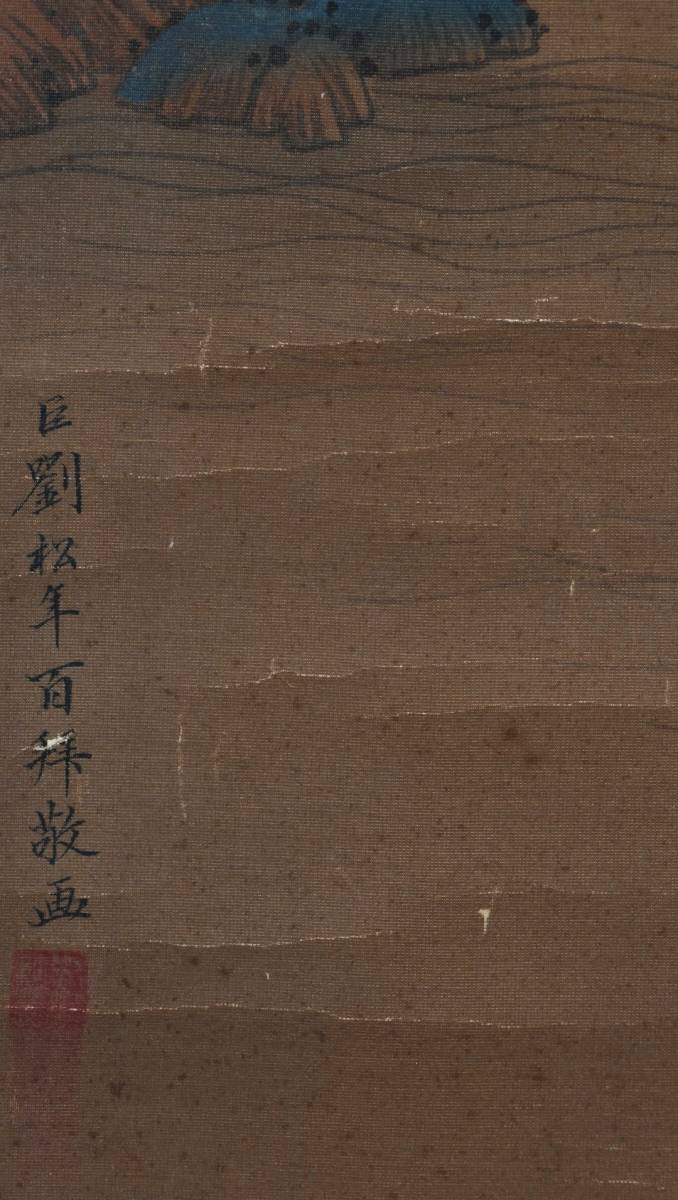 臣劉松年百拜敬画